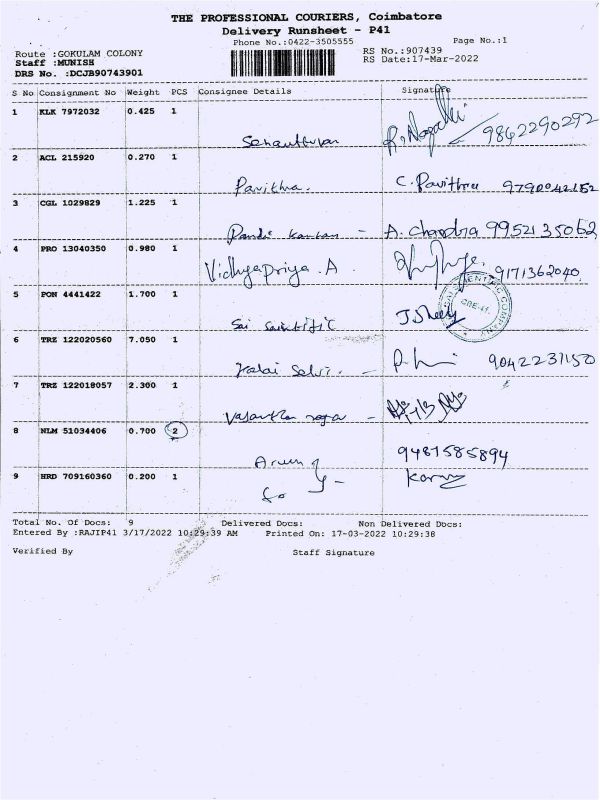 THE PROFESSIONAL COURIERS, Coimbatore
Delivery Runsheet - P41
Phone No.:0422-3505555
Page No.:1
Route :GOKULAM COLONY
RS No.:907439
Staff :MUNISH
RS Date:17-Mar-2022
DRS No. :DCJB90743901
S No Consignment No Weight PCS Consignee Details Signature
1 KLK 7972032 0.425 1
9862290292
2 ACL 215920 0.270 1
Pavithra. C. Pavithra 9790042152
3 CGL 1029829 1.225 1
Pandi - A. Chandra 9952135062
4 PRO 13040350 0.980 1
Vidhyapriya . A 9171362040
5 PON 4441422 1.700 1
Sai scientific
6 TRZ 122020560 7.050 1
Kalai Selvi. - 9042231150
7 TRZ 122018057 2.300 1
Vasantha -
8 NLM 51034406 0.700 2
Arun 9487585894
9 HRD 709160360 0.200 1
Total No. Of Docs: 9 Delivered Docs: Non Delivered Docs:
Entered By :RAJIP41 3/17/2022 10:29:39 AM Printed On: 17-03-2022 10:29:38
Verified By Staff Signature